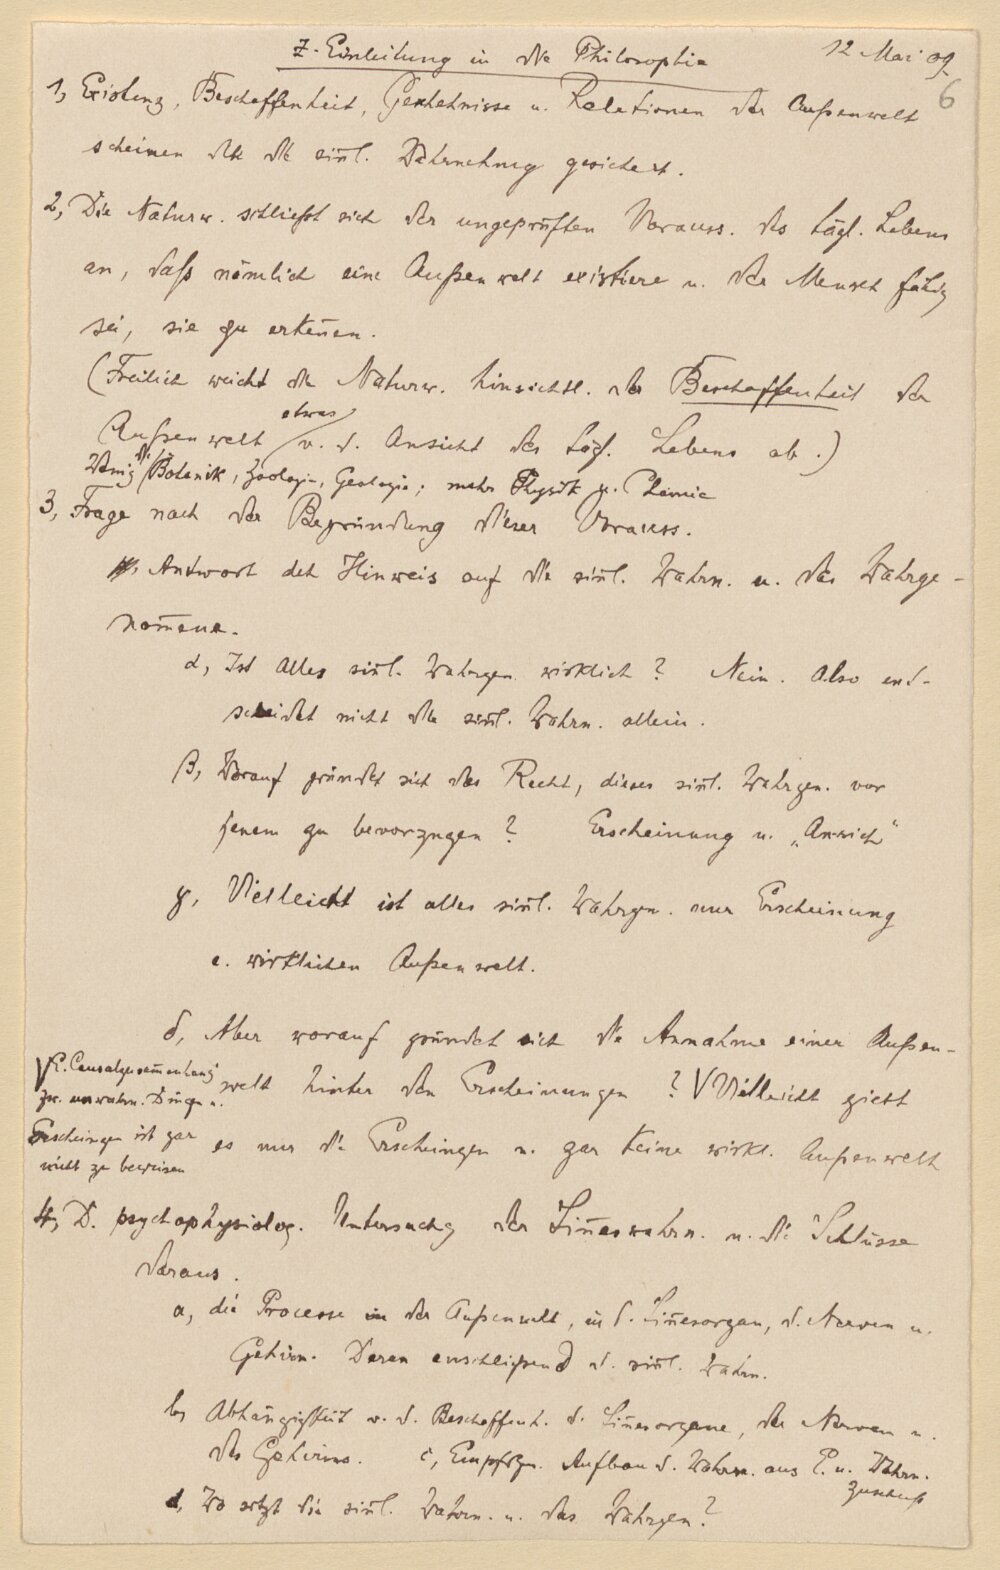 Z. Einleitung in die Philosophie
12 Mai 09
6
1, Existenz, Beschaffenheit, Geschehnisse u. Relationen der Außenwelt
scheinen dch die sinnl. Wahrnehmung gesichert.
2, Die Naturw. schließt sich der ungeprüften Vorauss. des tägl. Lebens
an, daß nämlich eine Außenwelt existiere u. der Mensch fähig
sei, sie zu erkennen.
(Freilich weicht die Naturw. hinsichtl. der Beschaffenheit der
etwas
Außenwelt v. d. Ansicht des tägl. Lebens ab.)
Wenig die Botanik, Zoologie, Geologie; mehr Physik u. Chemie
3, Frage nach der Begründung dieser Vorauss.
Antwort dch Hinweis auf die sinnl. Wahrn. u. das Wahrge-
nommene.
α, Ist Alles sinnl. Wahrgen. wirklich? Nein. Also ent-
scheidet nicht die sinnl. Wahrn. allein.
β, Worauf gründet sich das Recht, dieses sinnl. Wahrgen. vor
jenem zu bevorzugen? Erscheinung u. „An-sich"
γ, Vielleicht ist alles sinnl. Wahrgen. nur Erscheinung
e. wirklichen Außenwelt.
δ, Aber worauf gründet sich die Annahme einer Außen-
welt hinter den Erscheinungen? V Vielleicht giebt
es nur die Erscheingen u. gar keine wirkl. Außenwelt
V E. Causalzusammenhang
zw. unwahrn. Dingen u.
Erscheingen ist gar
nicht zu beweisen
4, D. psychophysiolog. Untersuchg der Sinneswahrn. u. die Schlüsse
daraus.
a, die Processe in der Außenwelt, in d. Sinnesorgan, d. Nerven u.
Gehirn. Daran anschließend d. sinnl. Wahrn.
b, Abhängigkeit v. d. Beschaffenh. d. Sinnesorgane, der Nerven u.
des Gehirns. c, Empfdgn. Aufbau d. Wahrn. aus E. u. Wahrn.
zuschuß
d, Wo sitzt die sinnl. Wahrn. u. das Wahrgen.?